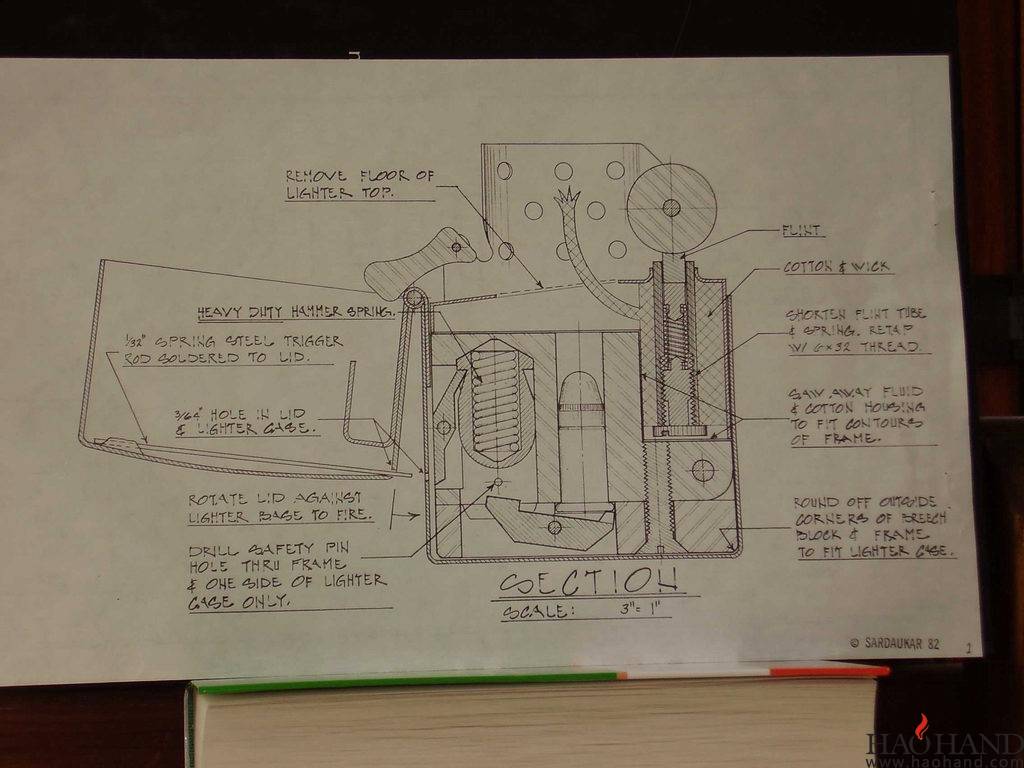 REMOVE FLOOR OF
LIGHTER TOP.
FLINT
COTTON & WICK
HEAVY DUTY HAMMER SPRING.
SHORTEN FLINT TUBE
& SPRING. RETAP
W/ 6×32 THREAD.
1/32" SPRING STEEL TRIGGER
ROD SOLDERED TO LID.
3/64" HOLE IN LID
& LIGHTER CASE.
SAW AWAY FLUID
& COTTON HOUSING
TO FIT CONTOURS
OF FRAME.
ROTATE LID AGAINST
LIGHTER BASE TO FIRE.
ROUND OFF OUTSIDE
CORNERS OF BREECH
BLOCK & FRAME
TO FIT LIGHTER CASE.
DRILL SAFETY PIN
HOLE THRU FRAME
& ONE SIDE OF LIGHTER
CASE ONLY.
SECTION
SCALE: 3"= 1"
© SARDAUKAR 82
1
HAOHAND
www.haohand.com